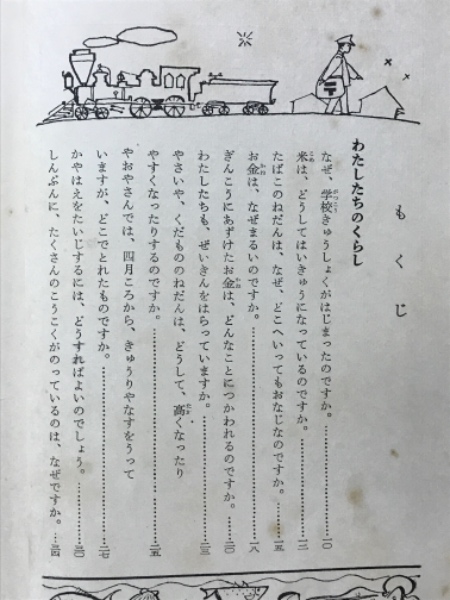 もくじ
わたしたちのくらし
なぜ、学校きゅうしょくがはじまったのですか。……一〇
米は、どうしてはいきゅうになっているのですか。……一二
たばこのねだんは、なぜ、どこへいってもおなじなのですか。……一五
お金は、なぜまるいのですか。……一八
ぎんこうにあずけたお金は、どんなことにつかわれるのですか。……二〇
わたしたちも、ぜいきんをはらっていますか。……二三
やさいや、くだもののねだんは、どうして、高くなったり
やすくなったりするのですか。……二五
やおやさんでは、四月ころから、きゅうりやなすをうって
いますが、どこでとれたものですか。……二七
かやはえをたいじするには、どうすればよいのでしょう。……三〇
しんぶんに、たくさんのこうこくがのっているのは、なぜですか。…三四